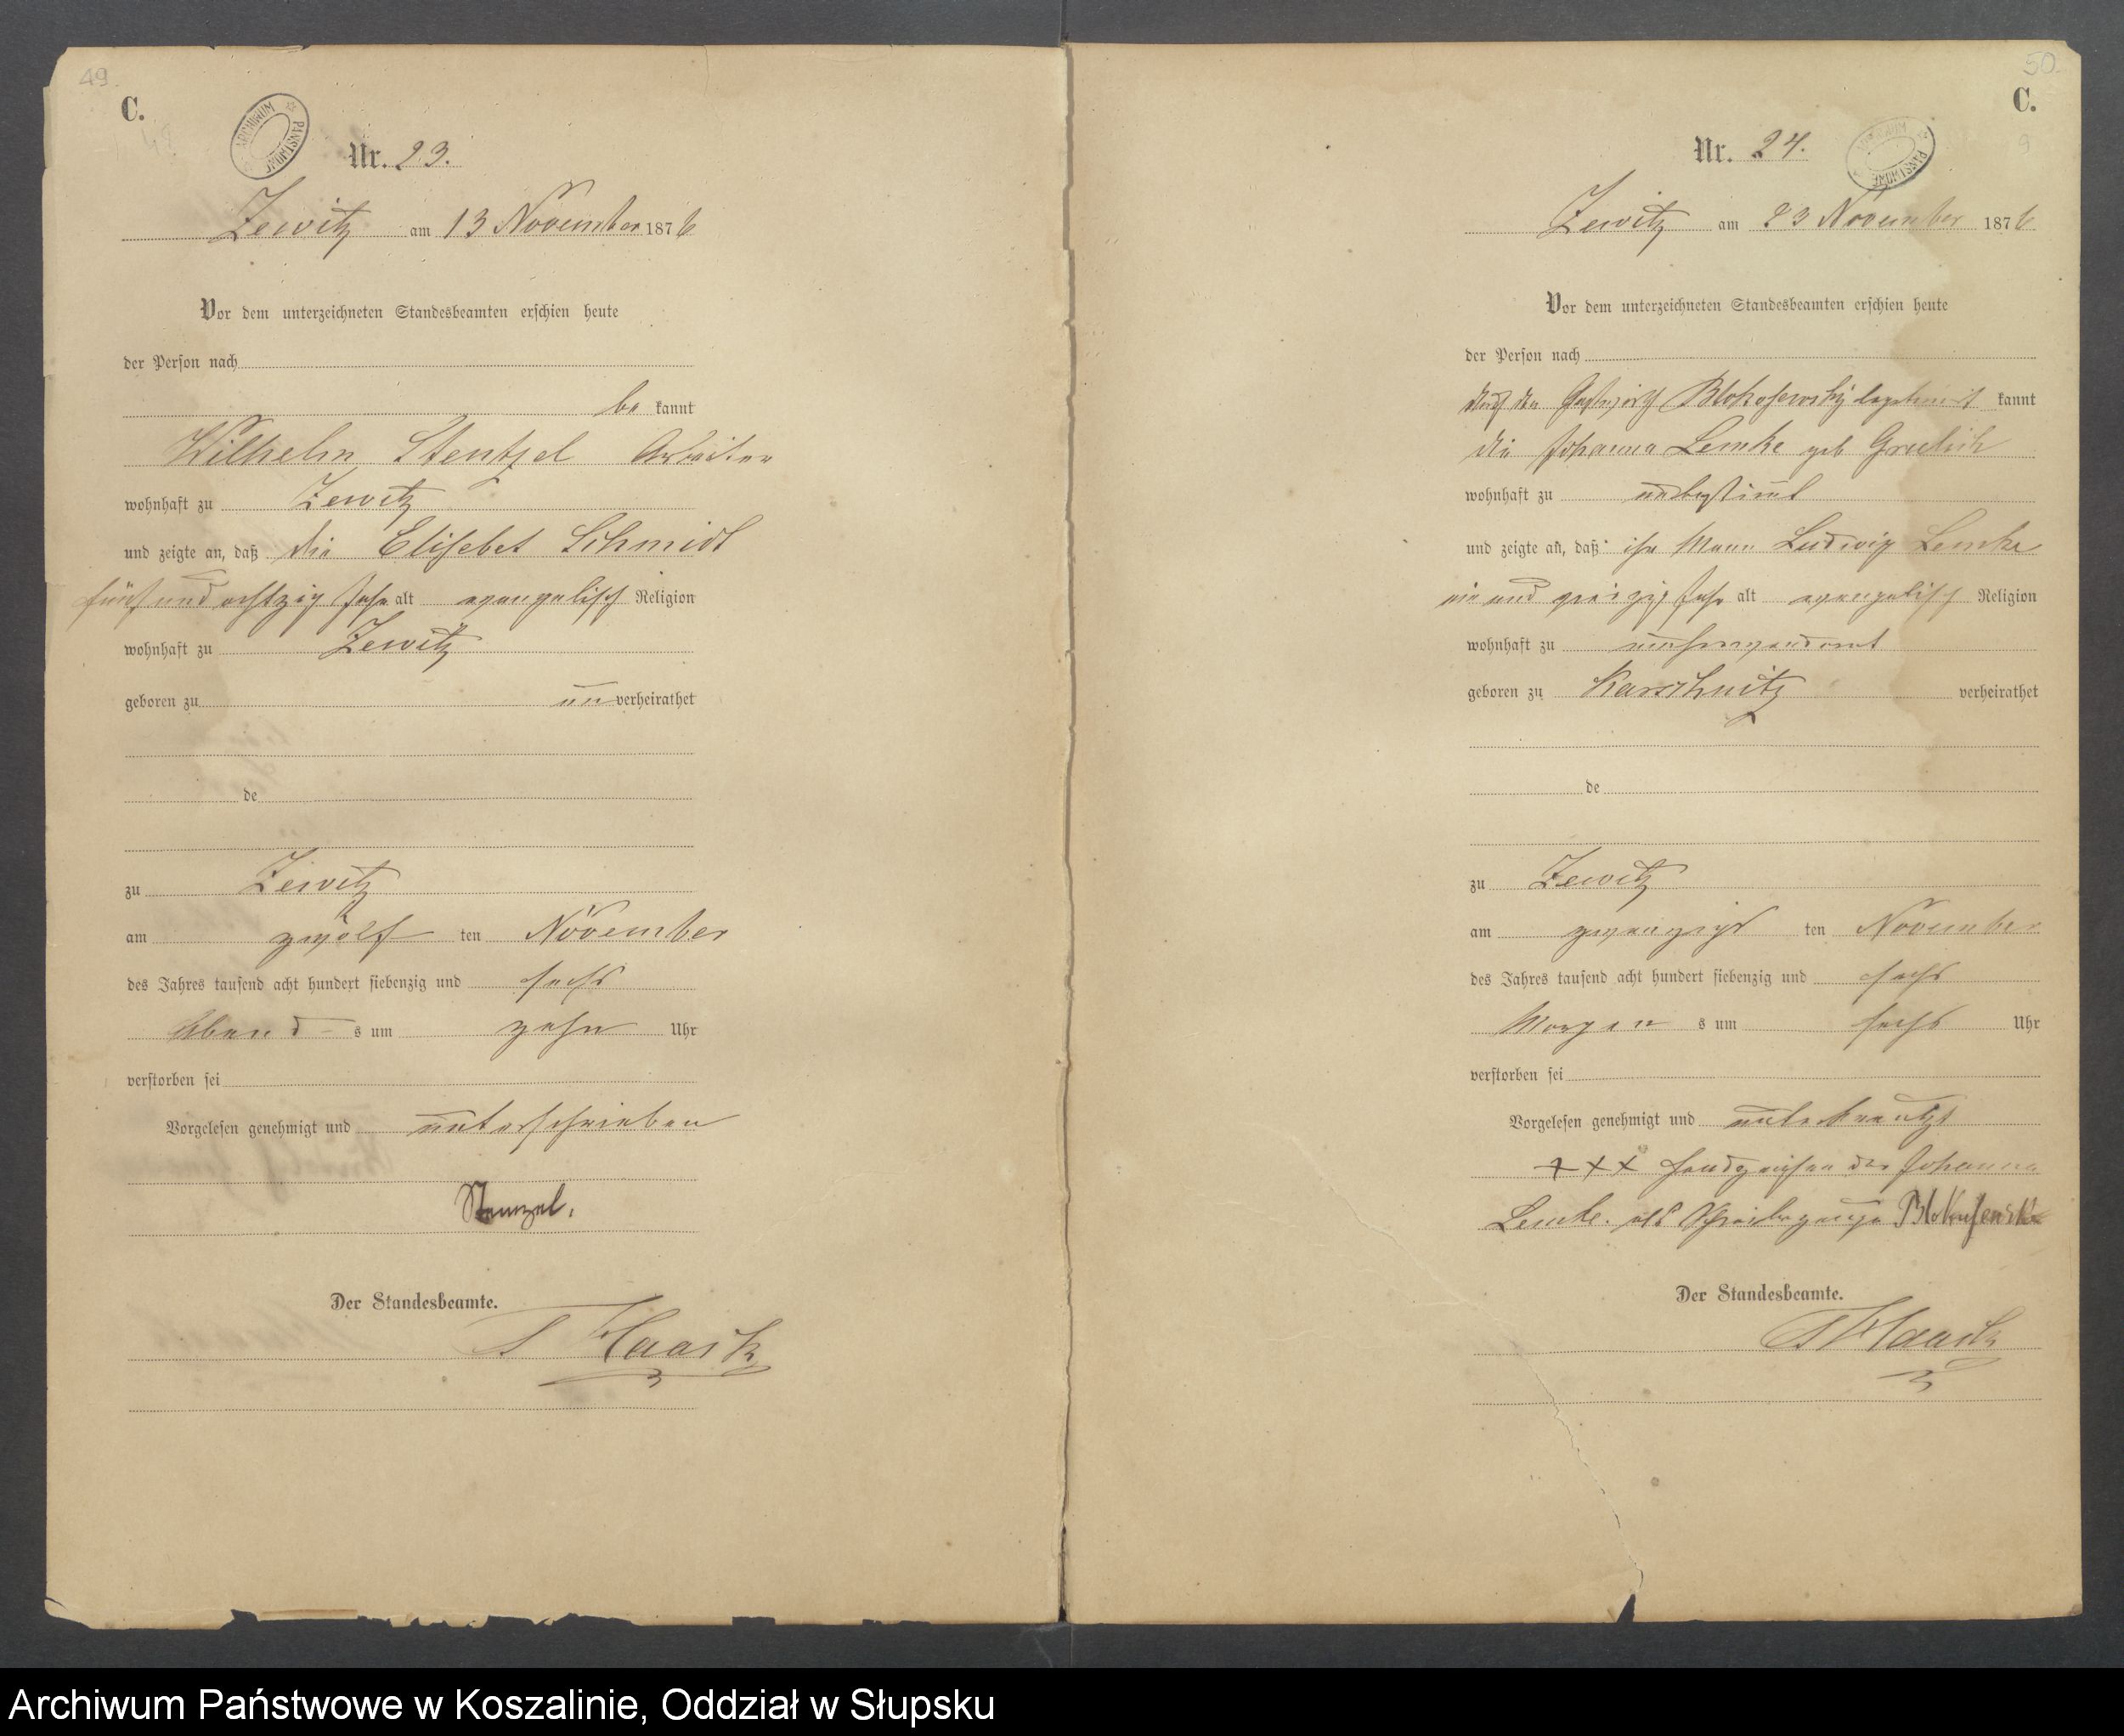 49.
C.
ARCHIWUM PAŃSTWOWE
Nr. 23.
Zewitz am 13 November 1876
Vor dem unterzeichneten Standesbeamten erschien heute
der Person nach
be kannt
Wilhelm Stentzel Arbeiter
wohnhaft zu Zewitz
und zeigte an, daß die Elisebet Schmidt
fünf und achtzig Jahr alt evangelisch Religion
wohnhaft zu Zewitz
geboren zu un verheirathet
de
zu Zewitz
am zwölf ten November
des Jahres tausend acht hundert siebenzig und sechs
Abend s um zehn Uhr
verstorben sei
Vorgelesen genehmigt und unterschrieben
Stenzel.
Der Standesbeamte.
Haack
50.
C.
9
ARCHIWUM PAŃSTWOWE
Nr. 24.
Zewitz am 23 November 1876
Vor dem unterzeichneten Standesbeamten erschien heute
der Person nach
durch den Gastwirth kannt
die Johanna Lemke geb Greelich
wohnhaft zu unbestimt
und zeigte an, daß ihr Mann Ludwig Lemke
ein und Jahr alt evangelisch Religion
wohnhaft zu
geboren zu Karschnitz verheirathet
de
zu Zewitz
am zwanzigs ten November
des Jahres tausend acht hundert siebenzig und sechs
Morgen s um sechs Uhr
verstorben sei
Vorgelesen genehmigt und unterkreutzt
+++ Handzeichen der Johanna
Lemke. als
Der Standesbeamte.
Haack
Archiwum Państwowe w Koszalinie, Oddział w Słupsku